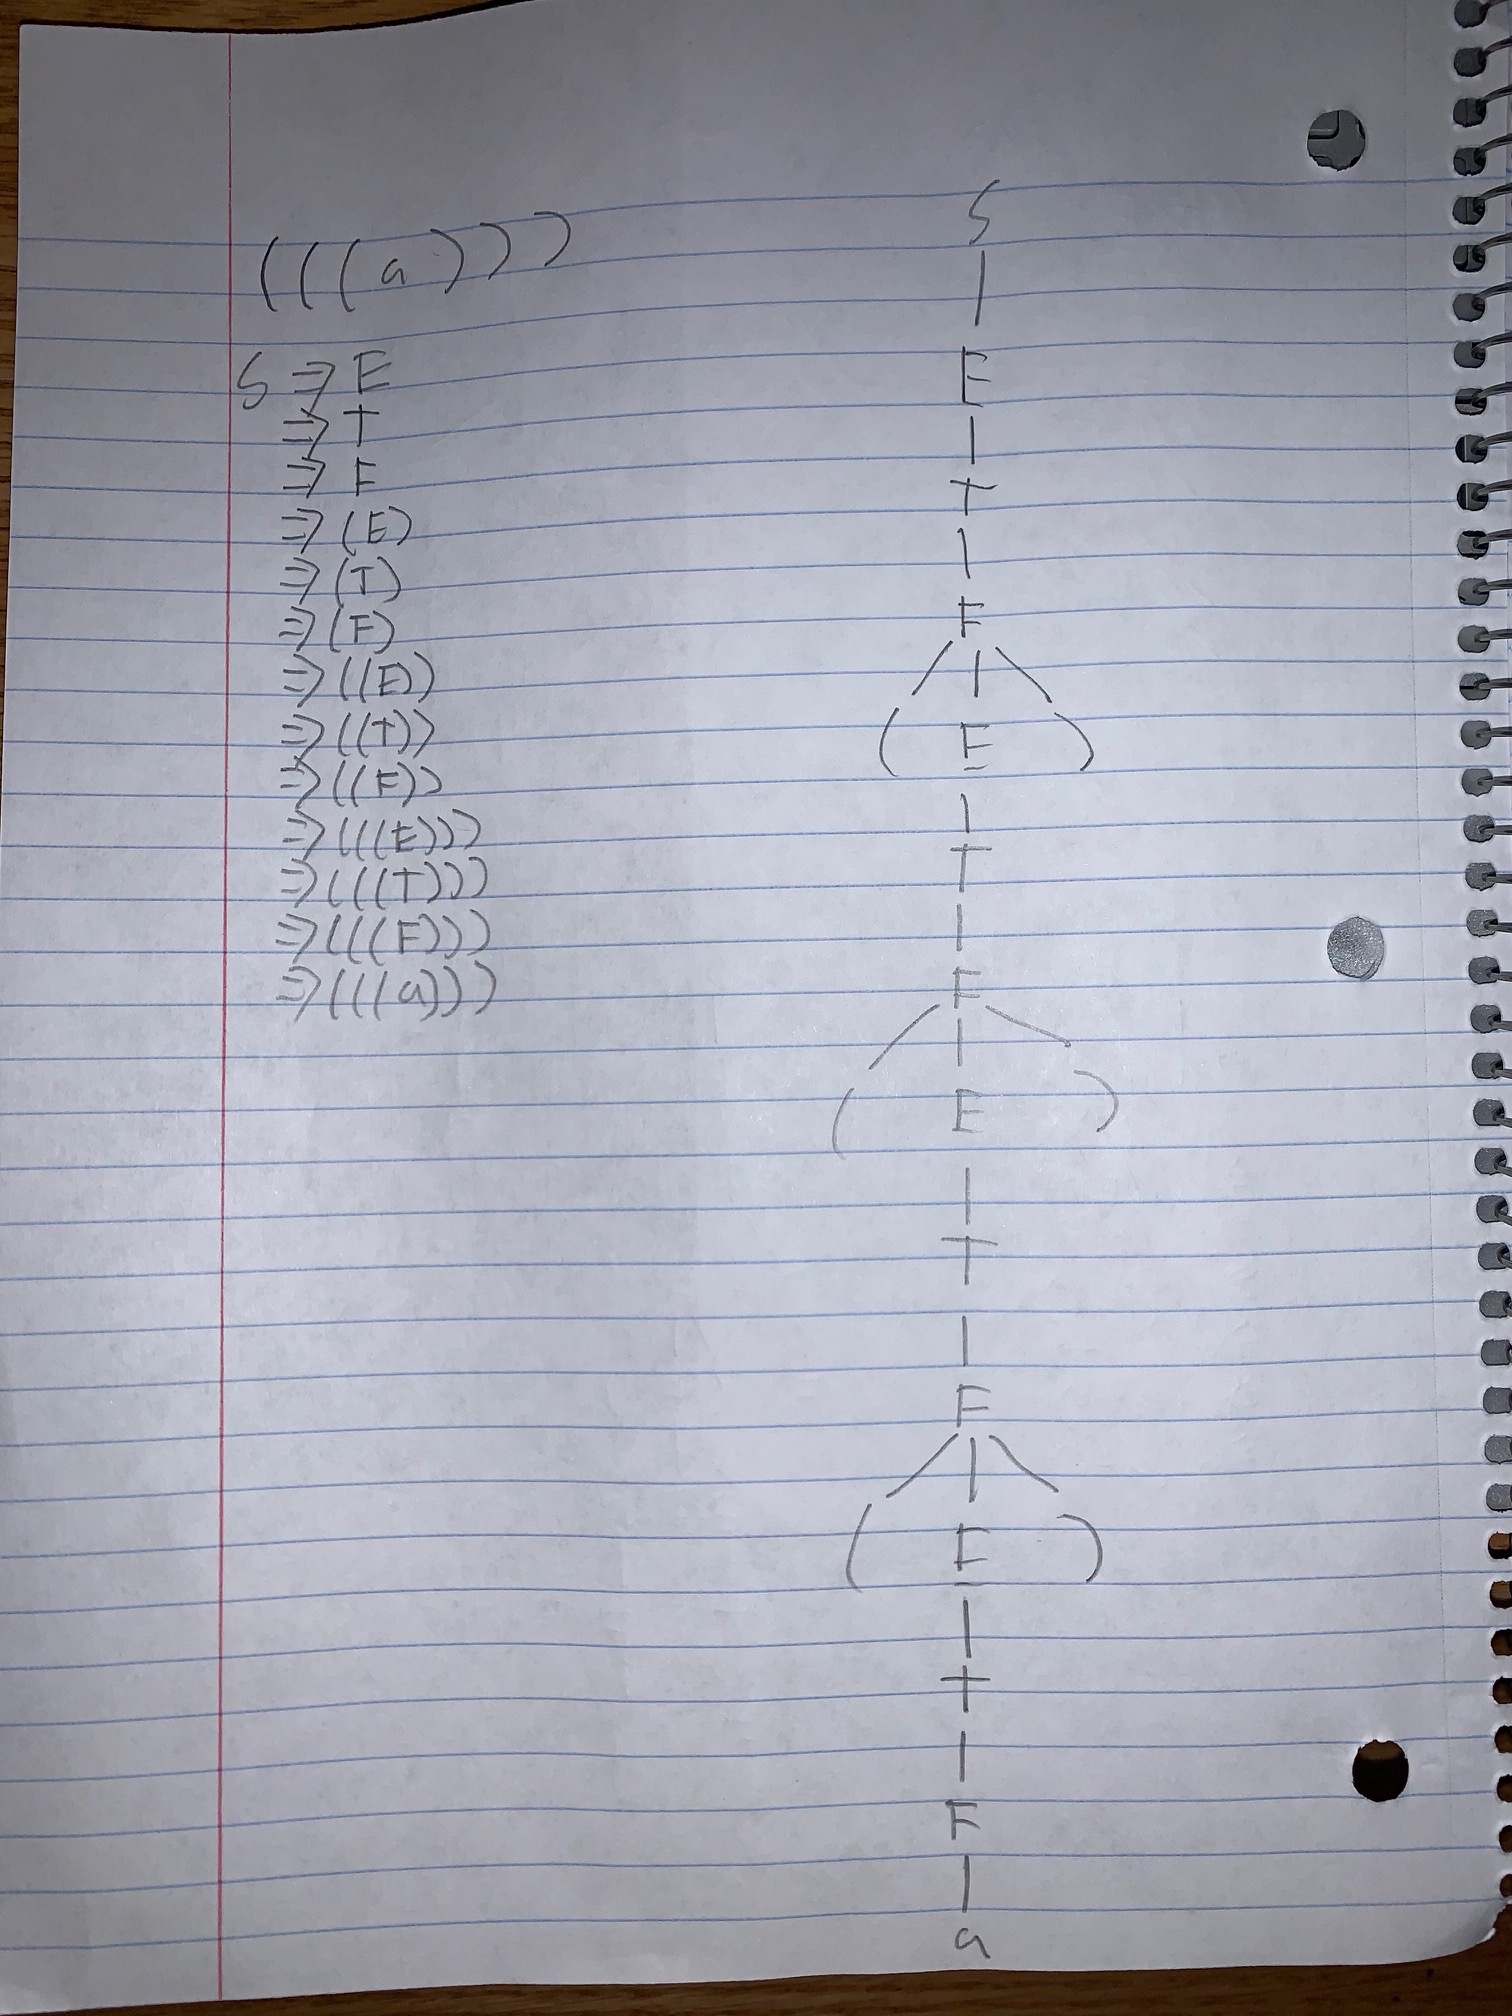 (((a)))
S ⇒ E
⇒ T
⇒ F
⇒ (E)
⇒ (T)
⇒ (F)
⇒ ((E))
⇒ ((T))
⇒ ((F))
⇒ (((E)))
⇒ (((T)))
⇒ (((F)))
⇒ (((a)))
S
E
T
F
( E )
T
F
( E )
T
F
( E )
T
F
a